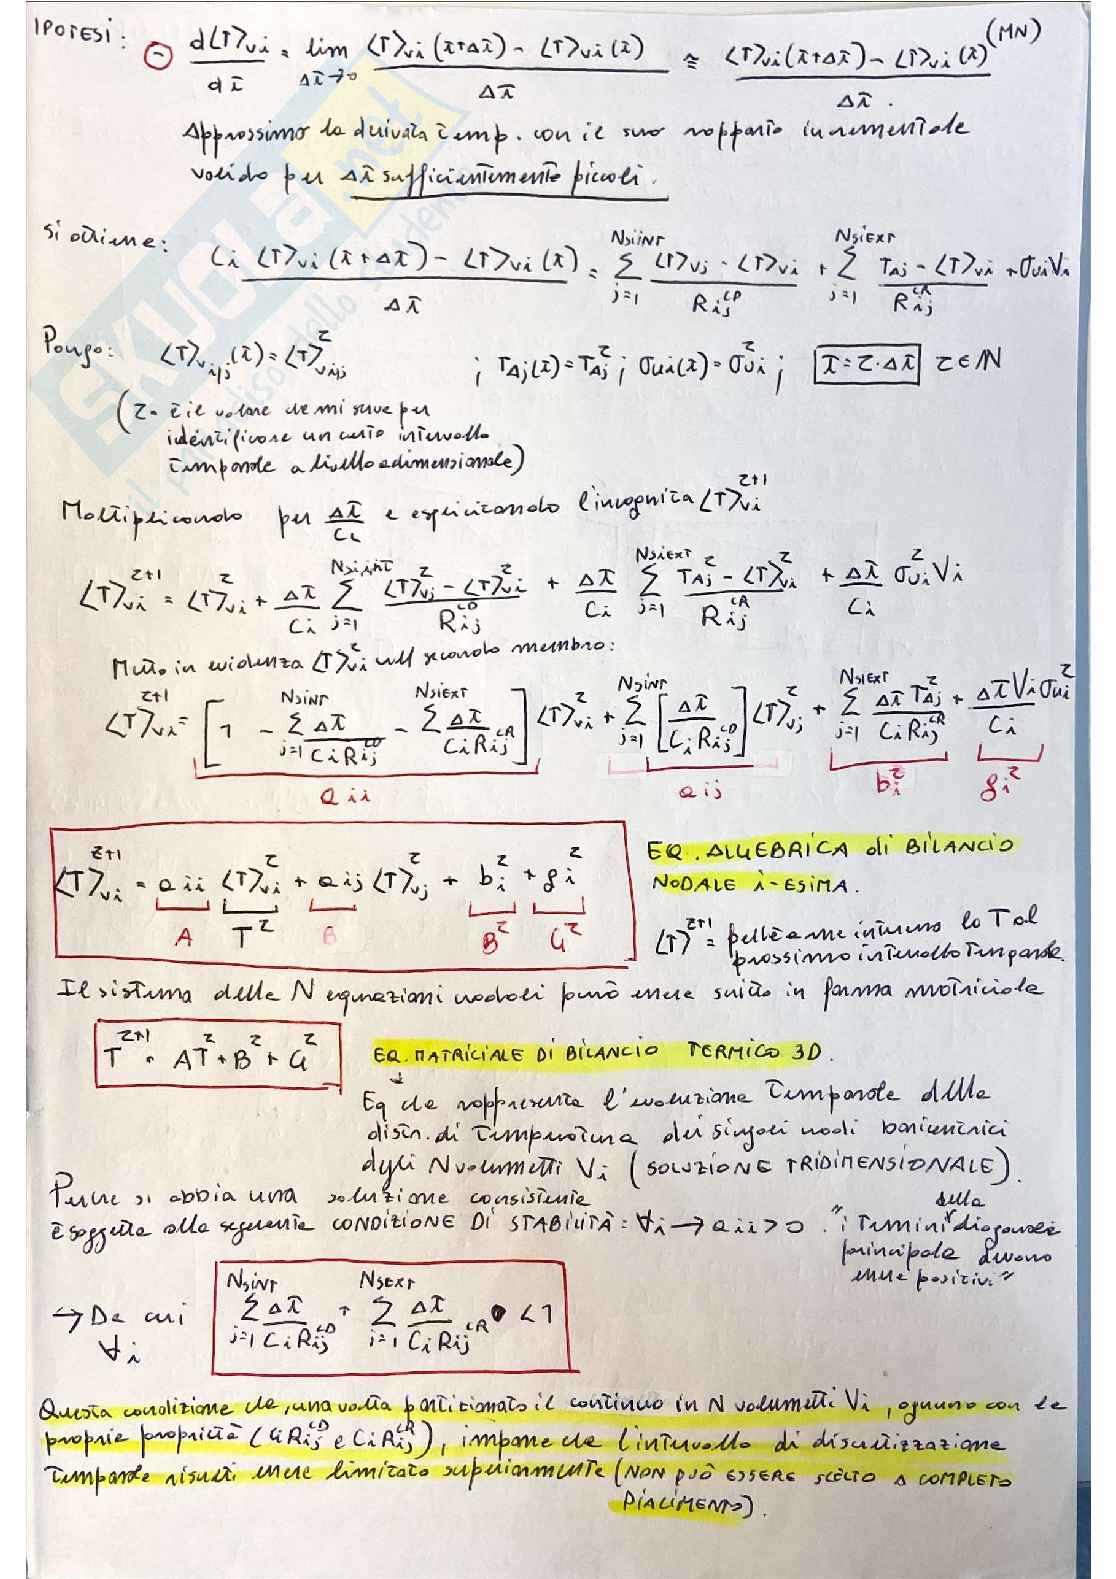 IPOTESI: ⊖ d⟨T⟩vi/dt̄ = lim Δt̄→0 ⟨T⟩vi(t̄+Δt̄) - ⟨T⟩vi(t̄) / Δt̄ ≅ ⟨T⟩vi(t̄+Δt̄) - ⟨T⟩vi(t̄) / Δt̄ . (MN)
Approssimo la derivata temp. con il suo rapporto incrementale
valido per Δt̄ sufficientemente piccoli.
Si ottiene: Ci ⟨T⟩vi(t̄+Δt̄) - ⟨T⟩vi(t̄) / Δt̄ = Σ j=1 NsiINT ⟨T⟩vj - ⟨T⟩vi / Rij^CD + Σ j=1 NsiEXT TAj - ⟨T⟩vi / Rij^CR + σui Vi
Pongo: ⟨T⟩vi/j(t̄) = ⟨T⟩vi/j^τ ; TAj(t̄) = TAj^τ ; σui(t̄) = σui^τ ; t̄ = τ·Δt̄ τ∈ℕ
(τ = è il valore che mi serve per
identificare un certo intervallo
temporale a livello adimensionale)
Moltiplicando per Δt̄/Ci e esplicitando l'incognita ⟨T⟩vi^τ+1
⟨T⟩vi^τ+1 = ⟨T⟩vi^τ + Δt̄/Ci Σ j=1 NsiINT ⟨T⟩vj^τ - ⟨T⟩vi^τ / Rij^CD + Δt̄/Ci Σ j=1 NsiEXT TAj^τ - ⟨T⟩vi^τ / Rij^CR + Δt̄/Ci σui^τ Vi
Metto in evidenza ⟨T⟩vi^τ nel secondo membro:
⟨T⟩vi^τ+1 = [1 - Σ j=1 NsINT Δt̄/CiRij^CD - Σ NsiEXT Δt̄/CiRij^CR] ⟨T⟩vi^τ + Σ j=1 NsINT [Δt̄/CiRij^CD] ⟨T⟩vj^τ + Σ j=1 NsiEXT Δt̄ TAj^τ/CiRij^CR + Δt̄ Vi σui^τ/Ci
aii aij bi^τ gi^τ
⟨T⟩vi^τ+1 = aii ⟨T⟩vi^τ + aij ⟨T⟩vj^τ + bi^τ + gi^τ
A T^τ B B^τ G^τ
EQ. ALGEBRICA di BILANCIO
NODALE i-ESIMA.
⟨T⟩^τ+1 = perché a me interessa la T al
prossimo intervallo temporale.
Il sistema delle N equazioni nodali può essere scritto in forma matriciale
T^τ+1 = AT^τ + B^τ + G^τ
EQ. MATRICIALE DI BILANCIO TERMICO 3D.
Eq che rappresenta l'evoluzione temporale della
distr. di temperatura dei singoli nodi baricentrici
degli N volumetti Vi (SOLUZIONE TRIDIMENSIONALE).
Perché si abbia una soluzione consistente
è soggetta alla seguente CONDIZIONE DI STABILITÀ: ∀i → aii > 0. "i termini della diagonale
principale devono
essere positivi"
↪ Da cui
∀i
Σ j=1 NsINT Δt̄/CiRij^CD + Σ j=1 NsEXT Δt̄/CiRij^CR < 1
Questa condizione che, una volta partizionato il continuo in N volumetti Vi, ognuno con le
proprie proprietà (CiRij^CD e CiRij^CR), impone che l'intervallo di discretizzazione
temporale risulti essere limitato superiormente (NON PUÒ ESSERE SCELTO A COMPLETO
PIACIMENTO).
SKUOLA.net